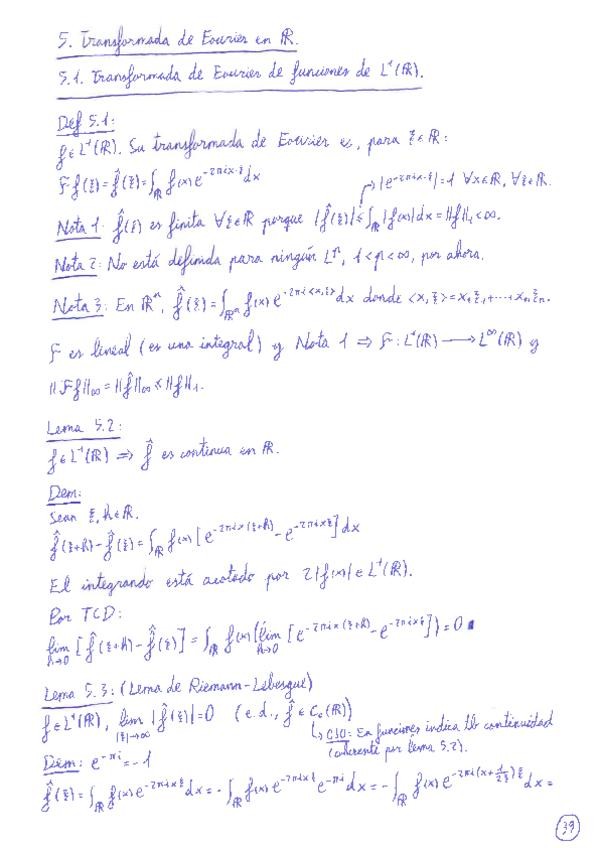 5. Transformada de Fourier en ℝ.
5.1. Transformada de Fourier de funciones de L¹(ℝ).
Def 5.1:
f∈L¹(ℝ). Su transformada de Fourier es, para ξ∈ℝ:
Ff(ξ)=f̂(ξ)=∫_ℝ f(x)e^{-2πix·ξ}dx
|e^{-2πix·ξ}|=1 ∀x∈ℝ, ∀ξ∈ℝ.
Nota 1: f̂(ξ) es finita ∀ξ∈ℝ porque |f̂(ξ)|≤∫_ℝ|f(x)|dx=||f||₁<∞.
Nota 2: No está definida para ningún L^p, 1<p<∞, por ahora.
Nota 3: En ℝⁿ, f̂(ξ)=∫_{ℝⁿ} f(x)e^{-2πi<x,ξ>}dx donde <x,ξ>=x₁ξ₁+···+xₙξₙ.
F es lineal (es una integral) y Nota 1 ⇒ F: L¹(ℝ)⟶L^∞(ℝ) y
||Ff||_∞=||f̂||_∞≤||f||₁.
Lema 5.2:
f∈L¹(ℝ) ⇒ f̂ es continua en ℝ.
Dem:
Sean ξ, h∈ℝ.
f̂(ξ+h)-f̂(ξ)=∫_ℝ f(x)[e^{-2πix(ξ+h)}-e^{-2πixξ}]dx
El integrando está acotado por 2|f(x)|∈L¹(ℝ).
Por TCD:
lim_{h→0}[f̂(ξ+h)-f̂(ξ)]=∫_ℝ f(x)(lim_{h→0}[e^{-2πix(ξ+h)}-e^{-2πixξ}])=0 ■
Lema 5.3: (Lema de Riemann-Lebesgue)
f∈L¹(ℝ), lim_{|ξ|→∞}|f̂(ξ)|=0 (e.d., f̂∈C₀(ℝ))
↳ OJO: En funciones indica tb continuidad
(coherente por Lema 5.2).
Dem: e^{-πi}=-1
f̂(ξ)=∫_ℝ f(x)e^{-2πixξ}dx=-∫_ℝ f(x)e^{-2πixξ}e^{-πi}dx=-∫_ℝ f(x)e^{-2πi(x+1/2ξ)ξ}dx=
39